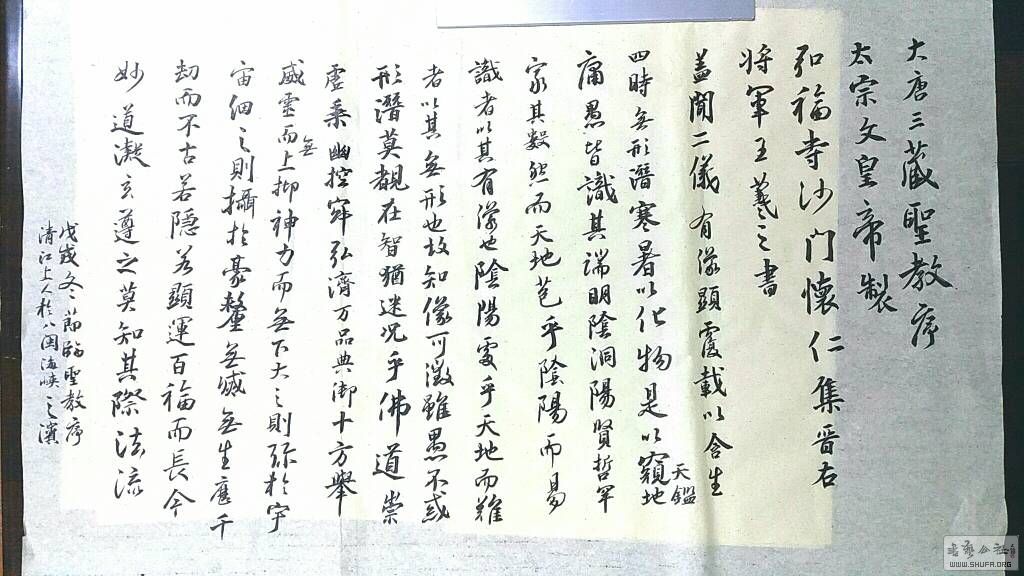 大唐三藏聖教序
太宗文皇帝製
弘福寺沙门懷仁集晋右
将軍王羲之書
盖聞二儀有像顯覆載以含生
四時無形潛寒暑以化物是以窺地
天鑑
庸愚皆識其端明陰洞陽賢哲罕
窮其數然而天地苞乎陰陽而易
識者以其有像也陰陽處乎天地而難
者以其無形也故知像可徵雖愚不惑
形潛莫覩在智猶迷况乎佛道崇
虛乘幽控寂弘濟万品典御十方舉
威靈而無上抑神力而無下大之則弥於宇
宙細之則攝於豪釐無滅無生歷千
劫而不古若隱若顯運百福而長今
妙道凝玄遵之莫知其際法流
戊戌冬節臨聖教序
清江上人於八闽海峡之濱
書藝公社
WWW.SHUFA.ORG